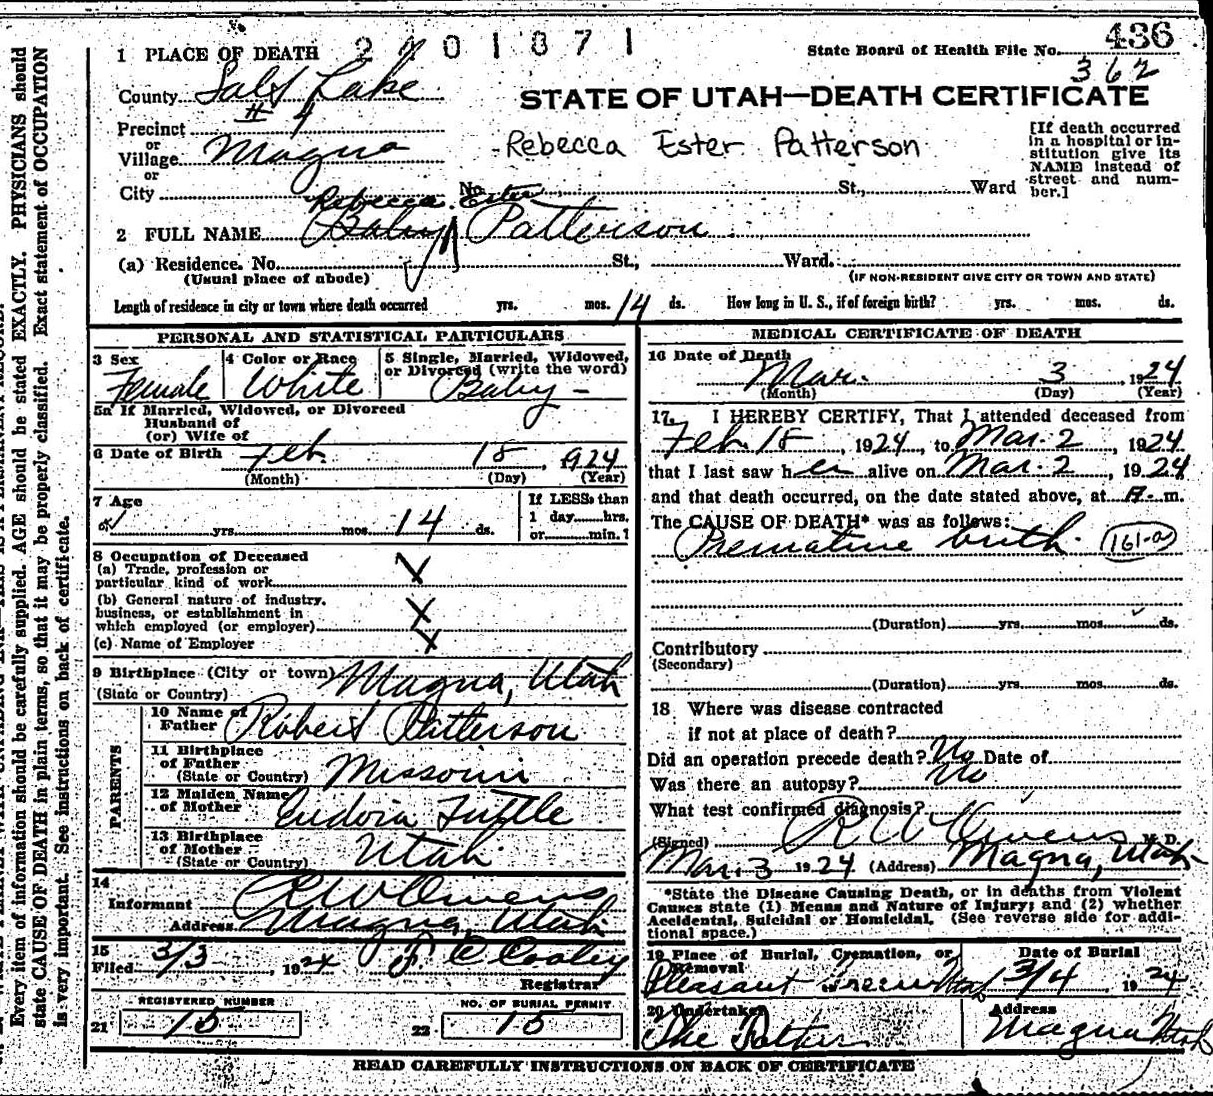 436
2 4 0 1 8 7 1
1 PLACE OF DEATH
State Board of Health File No.
362
County Salt Lake
STATE OF UTAH—DEATH CERTIFICATE
Precinct # 4
or
Village Magna
or
City No. St., Ward
Rebecca Ester Patterson
[If death occurred
in a hospital or in-
stitution give its
NAME instead of
street and num-
ber.]
Rebecca Ester
2 FULL NAME Baby Patterson
(a) Residence. No. St., Ward.
(Usual place of abode)
(IF NON-RESIDENT GIVE CITY OR TOWN AND STATE)
Length of residence in city or town where death occurred yrs. mos. 14 ds. How long in U. S., if of foreign birth? yrs. mos. ds.
PERSONAL AND STATISTICAL PARTICULARS
3 Sex
Female
4 Color or Race
White
5 Single, Married, Widowed,
or Divorced (write the word)
Baby
5a If Married, Widowed, or Divorced
Husband of
(or) Wife of
6 Date of Birth Feb. 18, 1924
(Month) (Day) (Year)
7 Age
yrs. mos. 14 ds.
If LESS than
1 day hrs.
or min.?
8 Occupation of Deceased
(a) Trade, profession or
particular kind of work X
(b) General nature of industry,
business, or establishment in
which employed (or employer) X
(c) Name of Employer X
9 Birthplace (City or town) Magna, Utah
(State or Country)
PARENTS
10 Name of
Father Robert Patterson
11 Birthplace
of Father
(State or Country) Missouri
12 Maiden Name
of Mother Eudora Tuttle
13 Birthplace
of Mother
(State or Country) Utah
14
Informant R W Owens
Address Magna, Utah
15
Filed 3/3, 1924 Cooley
Registrar
REGISTERED NUMBER
21 15
NO. OF BURIAL PERMIT
22 15
MEDICAL CERTIFICATE OF DEATH
16 Date of Death
Mar. 3, 1924
(Month) (Day) (Year)
17. I HEREBY CERTIFY, That I attended deceased from
Feb. 18, 1924, to Mar. 2, 1924
that I last saw her alive on Mar. 2, 1924
and that death occurred, on the date stated above, at A. m.
The CAUSE OF DEATH* was as follows:
Premature birth. (161-a)
(Duration) yrs. mos. ds.
Contributory
(Secondary)
(Duration) yrs. mos. ds.
18 Where was disease contracted
if not at place of death?
Did an operation precede death? No Date of
Was there an autopsy? No
What test confirmed diagnosis?
(Signed) R W Owens M. D.
Mar. 3 1924 (Address) Magna, Utah
*State the Disease Causing Death, or in deaths from Violent
Causes state (1) Means and Nature of Injury; and (2) whether
Accidental, Suicidal or Homicidal. (See reverse side for addi-
tional space.)
19 Place of Burial, Cremation, or
Removal
Pleasant Green
Date of Burial
3/4 1924
20 Undertaker
The Father
Address
Magna Utah
READ CAREFULLY INSTRUCTIONS ON BACK OF CERTIFICATE
Every item of information should be carefully supplied. AGE should be stated EXACTLY. PHYSICIANS should
state CAUSE OF DEATH in plain terms, so that it may be properly classified. Exact statement of OCCUPATION
is very important. See instructions on back of certificate.